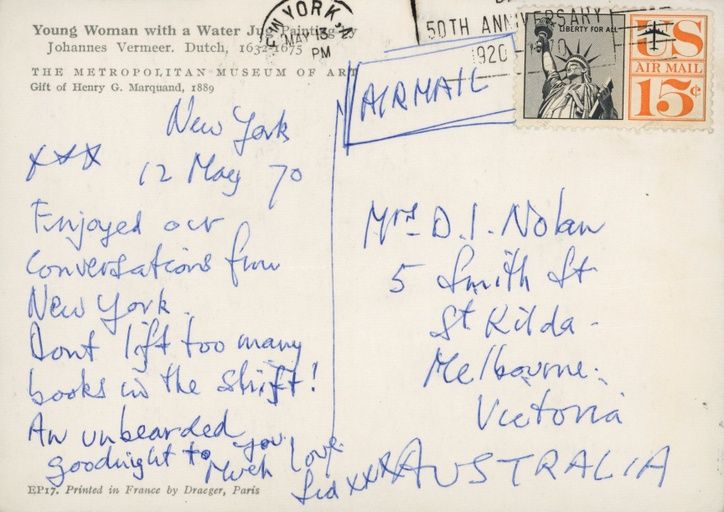 Young Woman with a Water Jug Painting by
Johannes Vermeer. Dutch, 1632-1675
THE METROPOLITAN MUSEUM OF ART
Gift of Henry G. Marquand, 1889
NEW YORK, N.Y.
MAY 13
PM
50TH ANNIVERSARY
1920 1970
LIBERTY FOR ALL
US
AIR MAIL
15¢
AIRMAIL
New York
xxx 12 May 70
Enjoyed our
Conversations from
New York.
Dont lift too many
books in the shift!
An unbearded
goodnight to you.
Much Love
Sid xxxx
Mrs D. I. Nolan
5 Smith St
St Kilda.
Melbourne.
Victoria
AUSTRALIA
EP17. Printed in France by Draeger, Paris